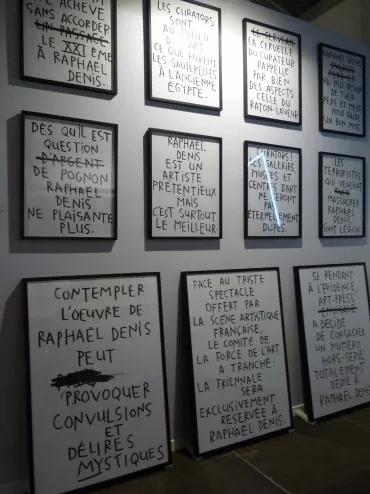 ACHEVÉ
SANS ACCORDER
UN PASSAGE
LE XXIÈME
À RAPHAËL
DENIS.
LES CURATORS
SONT
AU MILIEU
D'ART
CE QUE FURENT
LES SAUTERELLES
À L'ANCIENNE
ÉGYPTE.
LE CERVEAU
LA CERVELLE
DU CURATEUR
RAPPELLE
PAR BIEN
DES ASPECTS
CELLE DU
RATON-LAVEUR
RAPHAËL DENIS
N'A NUL BESOIN
DE TUER
PÈRE ET MÈRE
POUR FAIRE
UN BON MOT.
DÈS QU'IL EST
QUESTION
D'ARGENT
DE POGNON
RAPHAËL
DENIS
NE PLAISANTE
PLUS.
RAPHAËL
DENIS
EST UN
ARTISTE
PRÉTENTIEUX
MAIS
C'EST SURTOUT
LE MEILLEUR.
CURATORS!
GALERIES,
MUSÉES ET
CENTRES D'ART
NE SERONT
PAS
ÉTERNELLEMENT
DUPES.
LES
TERRORISTES
QUI VEULENT
MASSACRER
RAPHAËL
DENIS
SONT LÉGION.
CONTEMPLER
L'OEUVRE DE
RAPHAËL DENIS
PEUT
PROVOQUER
CONVULSIONS
ET
DÉLIRES
MYSTIQUES
FACE AU TRISTE
SPECTACLE
OFFERT PAR
LA SCÈNE ARTISTIQUE
FRANÇAISE,
LE COMITÉ DE
LA FORCE DE L'ART
A TRANCHÉ:
LA TRIENNALE
SERA
EXCLUSIVEMENT
RÉSERVÉE À
RAPHAËL DENIS.
SE RENDANT
À L'ÉVIDENCE,
ART-PRESS
A DÉCIDÉ
DE CONSACRER
UN NUMÉRO
HORS-SÉRIE
TOTALEMENT
DÉDIÉ À
RAPHAËL DENIS